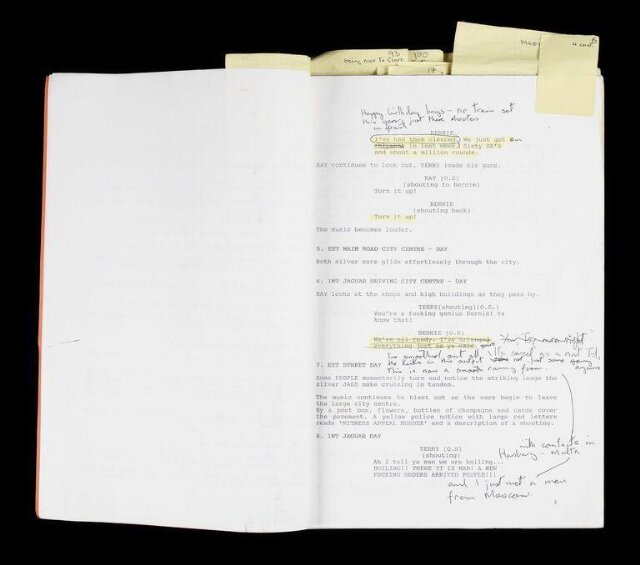 93
100
being nice to Clare
17
Happy birthday boys - no train set
this year, just these shooters
BERNIE
I've had them cleaned. We just got
in last week. Sixty SK'S
and about a million rounds.
RAY continues to look out. TERRY loads his guns.
RAY (O.S)
(shouting to Bernie)
Turn it up!
BERNIE
(shouting back)
Turn it up!
The music becomes louder.
5. EXT MAIN ROAD CITY CENTRE - DAY
Both silver cars glide effortlessly through the city.
6. INT JAGUAR DRIVING CITY CENTRE - DAY
RAY looks at the shops and high buildings as they pass by.
TERRY(shouting)(O.S.)
You're a fucking genius Bernie! Ya
know that!
BERNIE (O.S)
We're all ready. I've assessed
everything just
I've smoothed out all
This is now a smooth
7. EXT STREET DAY
Some PEOPLE momentarily turn and notice the striking image the
silver JAGS make cruising in tandem.
The music continues to blast out as the cars begin to leave
the large city centre.
By a post box, flowers, bottles of champagne and cards cover
the pavement. A yellow police notice with large red letters
reads 'WITNESS APPEAL MURDER' and a description of a shooting.
8. INT JAGUAR DAY
with contacts in
Hamburg - Malta
TERRY (O.S)
(shouting)
Am I tell ya man we are boiling...
BOILING!! THERE IT IS MAN! A NEW
FUCKING ORDERS ARRIVED PEOPLE!!!
and I just met a man
from Moscow.